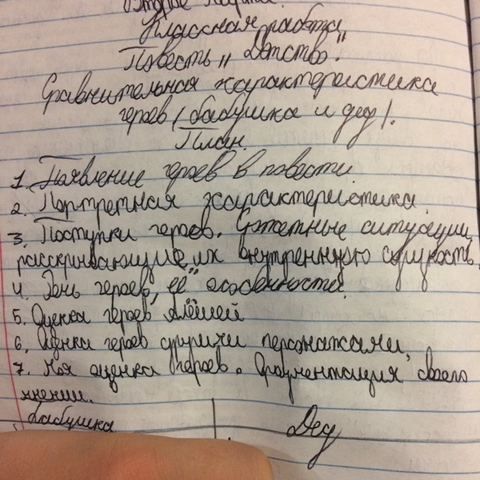 Второе
Классная работа
Повесть „Детство".
Сравнительная характеристика
героев (бабушка и дед).
План.
1. Появление героев в повести.
2. Портретная характеристика.
3. Поступки героев. Сюжетные ситуации,
раскрывающие их внутреннюю сущность.
4. Речь героев, её особенности.
5. Оценка героев Алёшей
6. Оценка героев другими персонажами.
7. Моя оценка героев. Аргументация своего
мнения.
Бабушка Дед